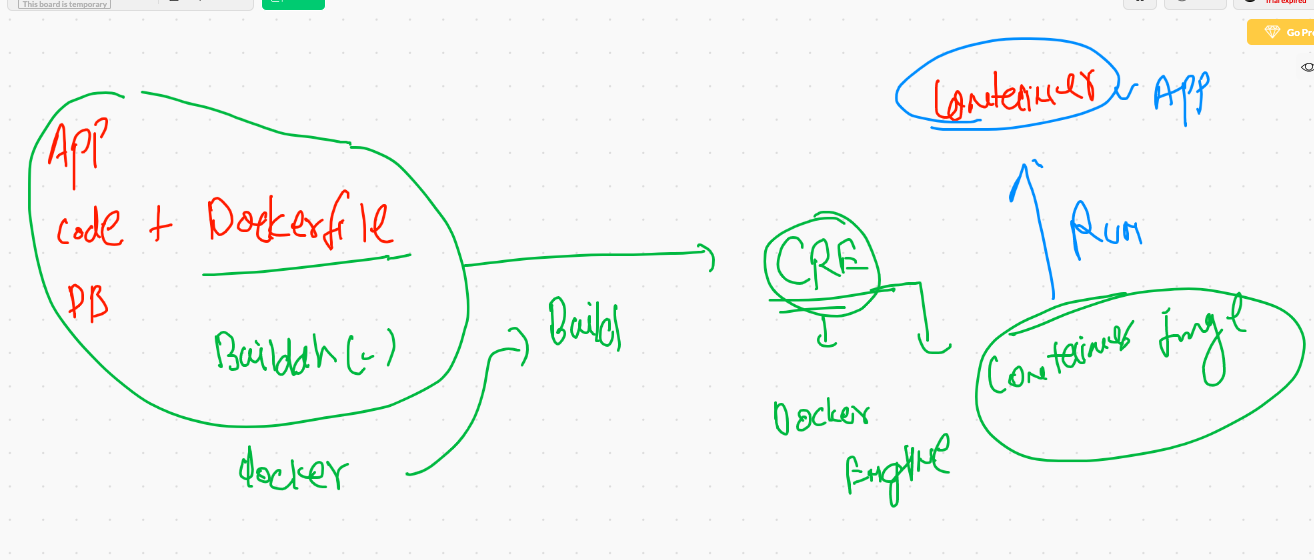 This board is temporary
Trial expired
Go Pr
App
code + Dockerfile
DB
Buildah(-)
docker
Build
CRE
Docker
Engine
Container
App
Run
Container Image